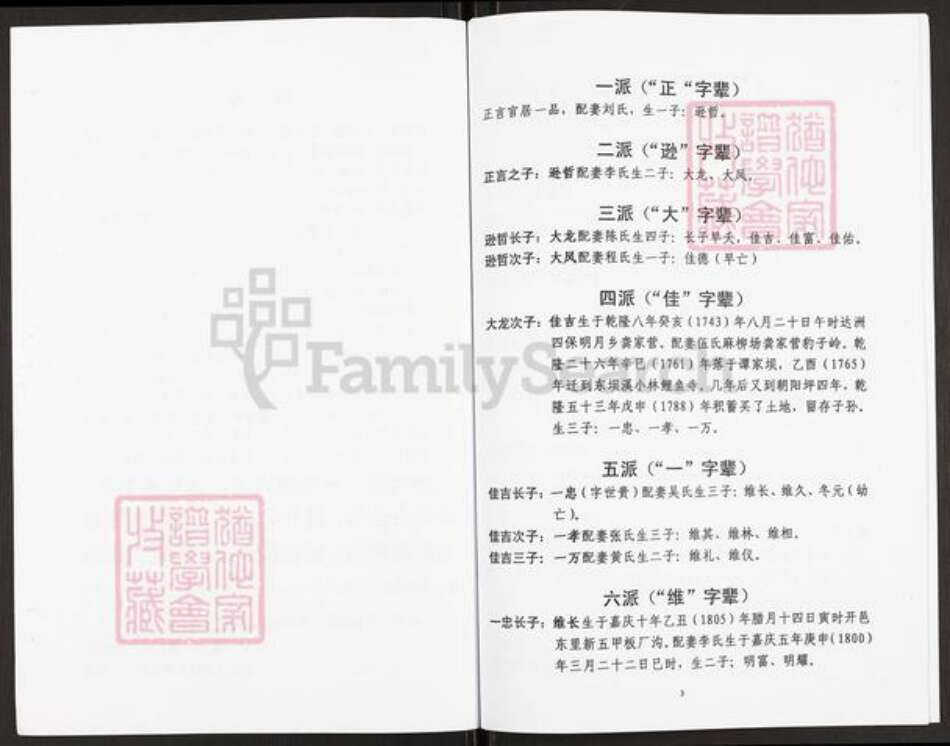 一派（“正“字辈）
正言官居一品，配妻刘氏，生一子：逊哲。
二派（“逊”字辈）
正言之子：逊哲配妻李氏生二子：大龙、大凤。
三派（“大”字辈）
逊哲长子：大龙配妻陈氏生四子：长子早夭，佳吉、佳富、佳佑。
逊哲次子：大凤配妻程氏生一子：佳德（早亡）
四派（“佳”字辈）
大龙次子：佳吉生于乾隆八年癸亥（1743）年八月二十日午时达洲
四保明月乡龚家营、配妻伍氏麻柳场龚家营豹子岭。乾
隆二十六年辛巳（1761）年落于谭家坝，乙酉（1765）
年迁到东坝溪小林鲤鱼令。几年后又到朝阳坪四年。乾
隆五十三年戊申（1788）年积蓄买了土地，留存子孙。
生三子：一忠、一孝、一万。
五派（“一”字辈）
佳吉长子：一忠（字世贵）配妻吴氏生三子：维长、维久、冬元（幼
亡）。
佳吉次子：一孝配妻张氏生三子：维其、维林、维相。
佳吉三子：一万配妻黄氏生二子：维礼、维仪。
六派（“维”字辈）
一忠长子：维长生于嘉庆十年乙丑（1805）年腊月十四日寅时开邑
东里新五甲板厂沟。配妻李氏生于嘉庆五年庚申（1800）
年三月二十二日巳时，生二子；明富、明耀。
3
FamilySearch
猶他家
譜學會
收藏
猶他家
譜學會
收藏